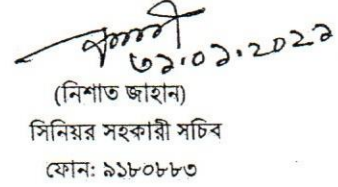 ৩১.০১.২০২২
(নিশাত জাহান)
সিনিয়র সহকারী সচিব
ফোন: ৯১৮০৮৮৩